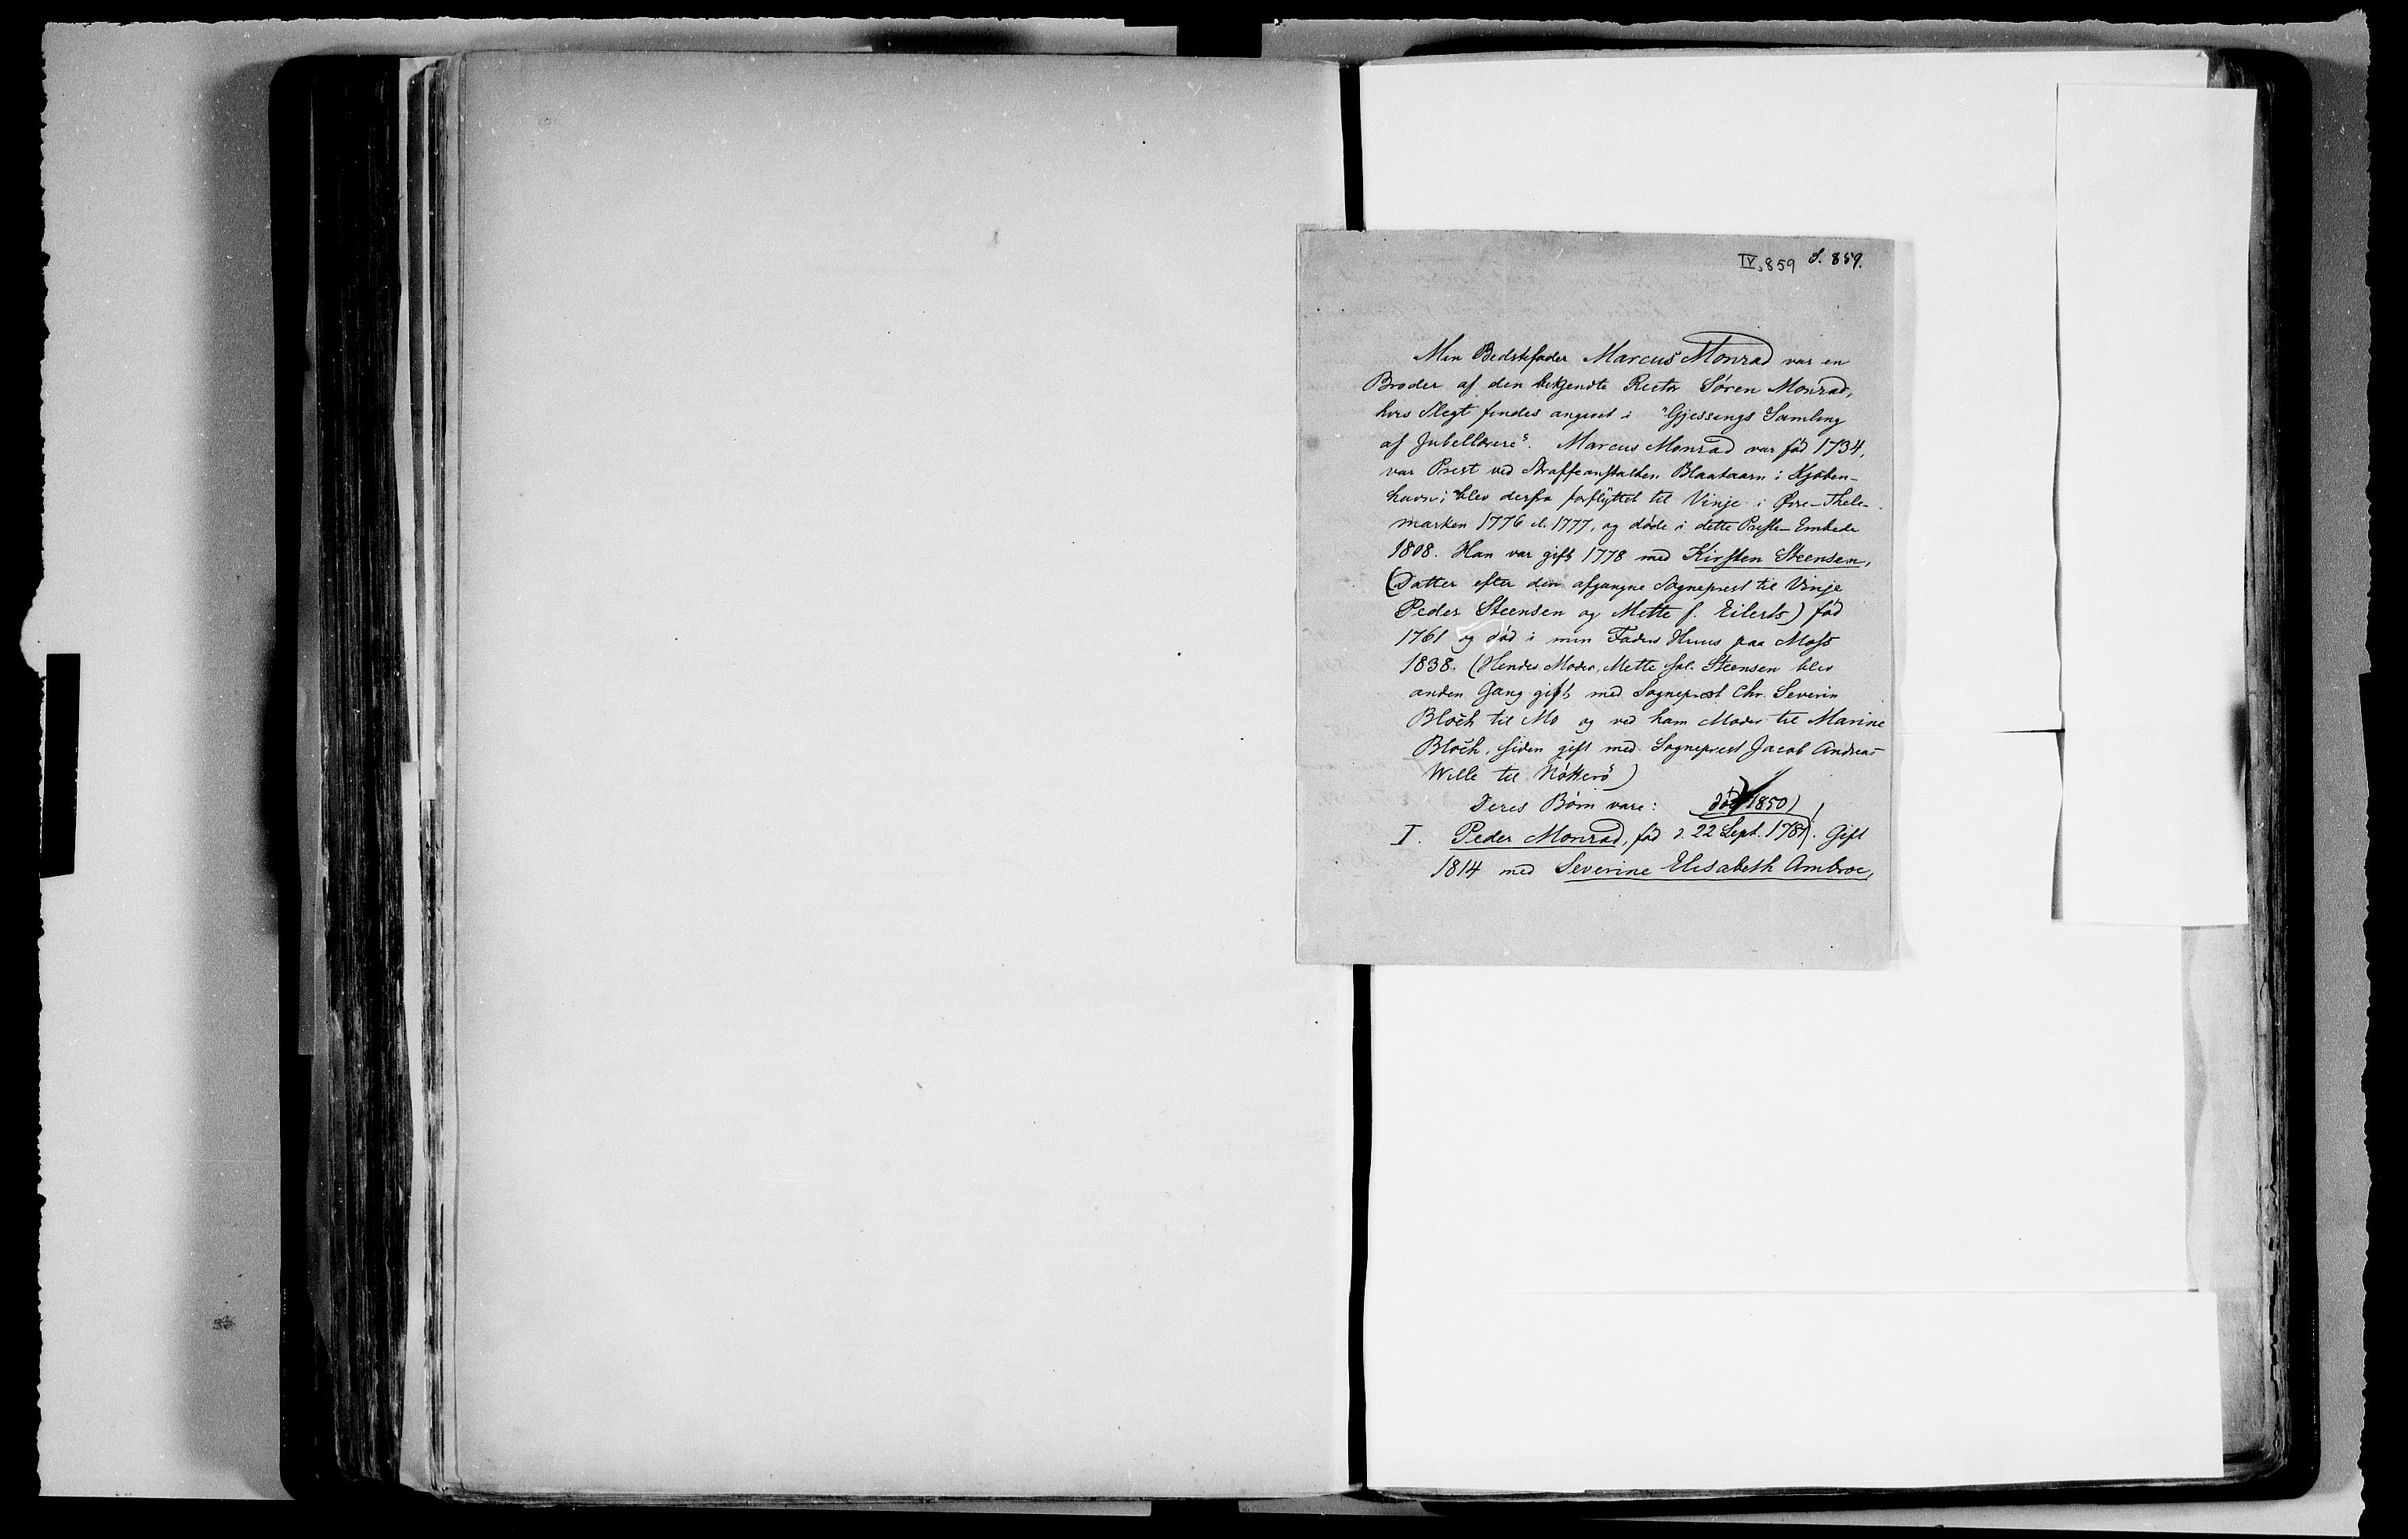 IV, 859 S. 859.
Min Bedstefader Marcus Monrad var en
Broder af den bekjendte Rector Sören Monrad,
hvis Slegt findes angivet i "Gjessings Samling
af Jubellærere". Marcus Monrad var fød 1734,
var Prest ved Straffeanstalten Blaataarn i Kjøben-
havn; blev derfra forflyttet til Vinje i Øvre-Thele-
marken 1776 el. 1777, og døde i dette Preste-Embede
1808. Han var gift 1778 med Kirsten Steensen,
(Datter efter den afgangne Sogneprest til Vinje
Peder Steensen og Mette f. Eilerts) fød
1761 og død i min Faders Huus paa Moss
1838. (Hendes Moder, Mette sal. Steensen blev
anden Gang gift med Sogneprest Chr. Severin
Bloch til Mo og ved ham Moder til Marine
Bloch, siden gift med Sogneprest Jacob Andreas
Wille til Nøtterö)
Deres Børn vare: død 1850)
I. Peder Monrad, fød d. 22 Sept. Gift
1814 med Severine Elisabeth Ambroe,